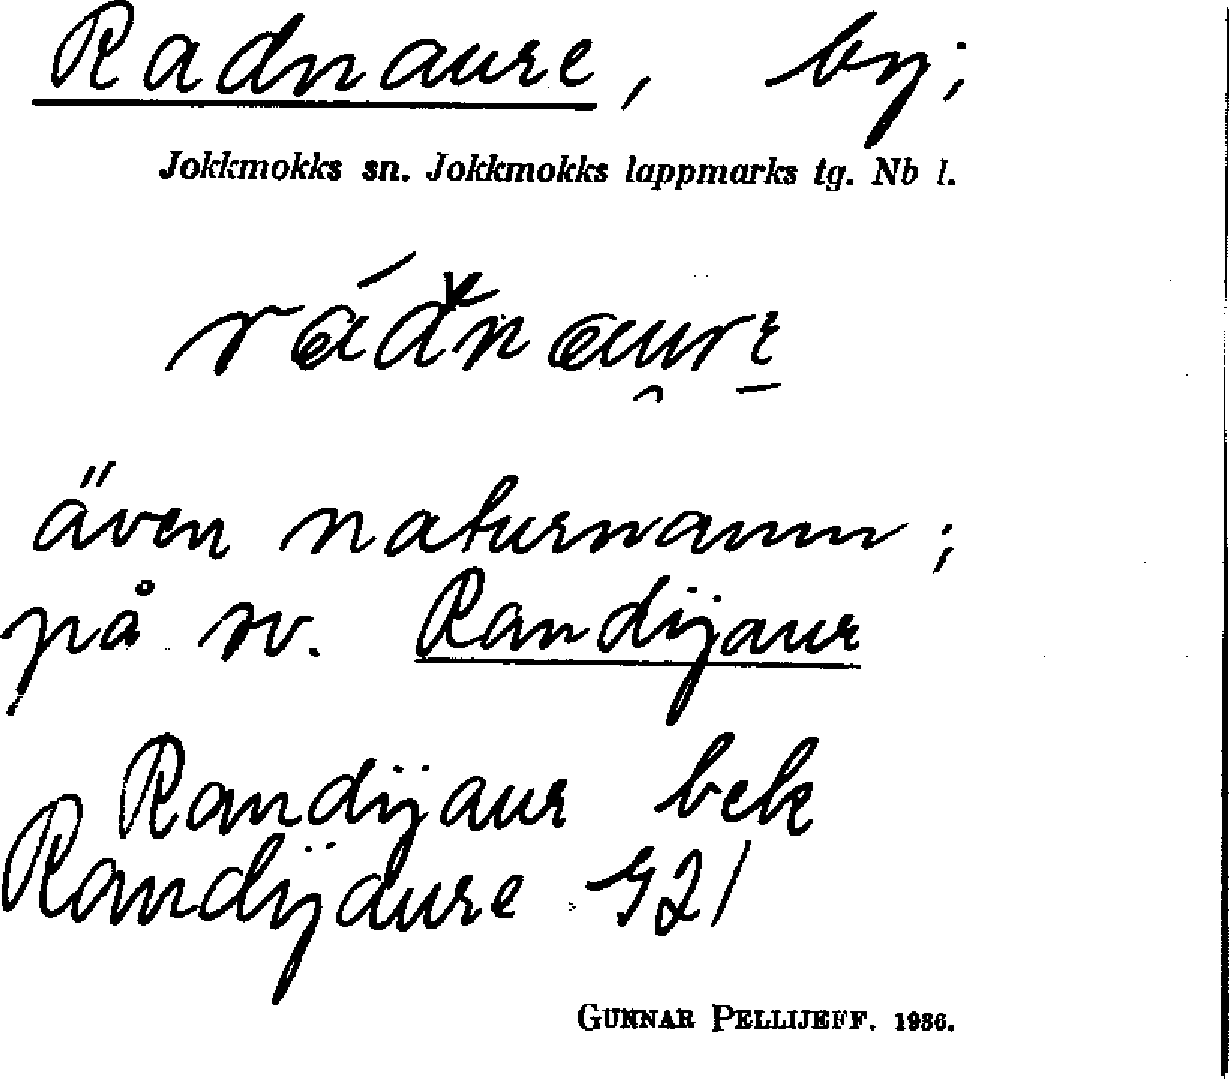 Radnaure, by;
Jokkmokks sn. Jokkmokks lappmarks tg. Nb l.
även naturnamn;
på sv. Randijaur
Randijaur bek
Randijaure 921
GUNNAR PELLIJEFF. 1936.